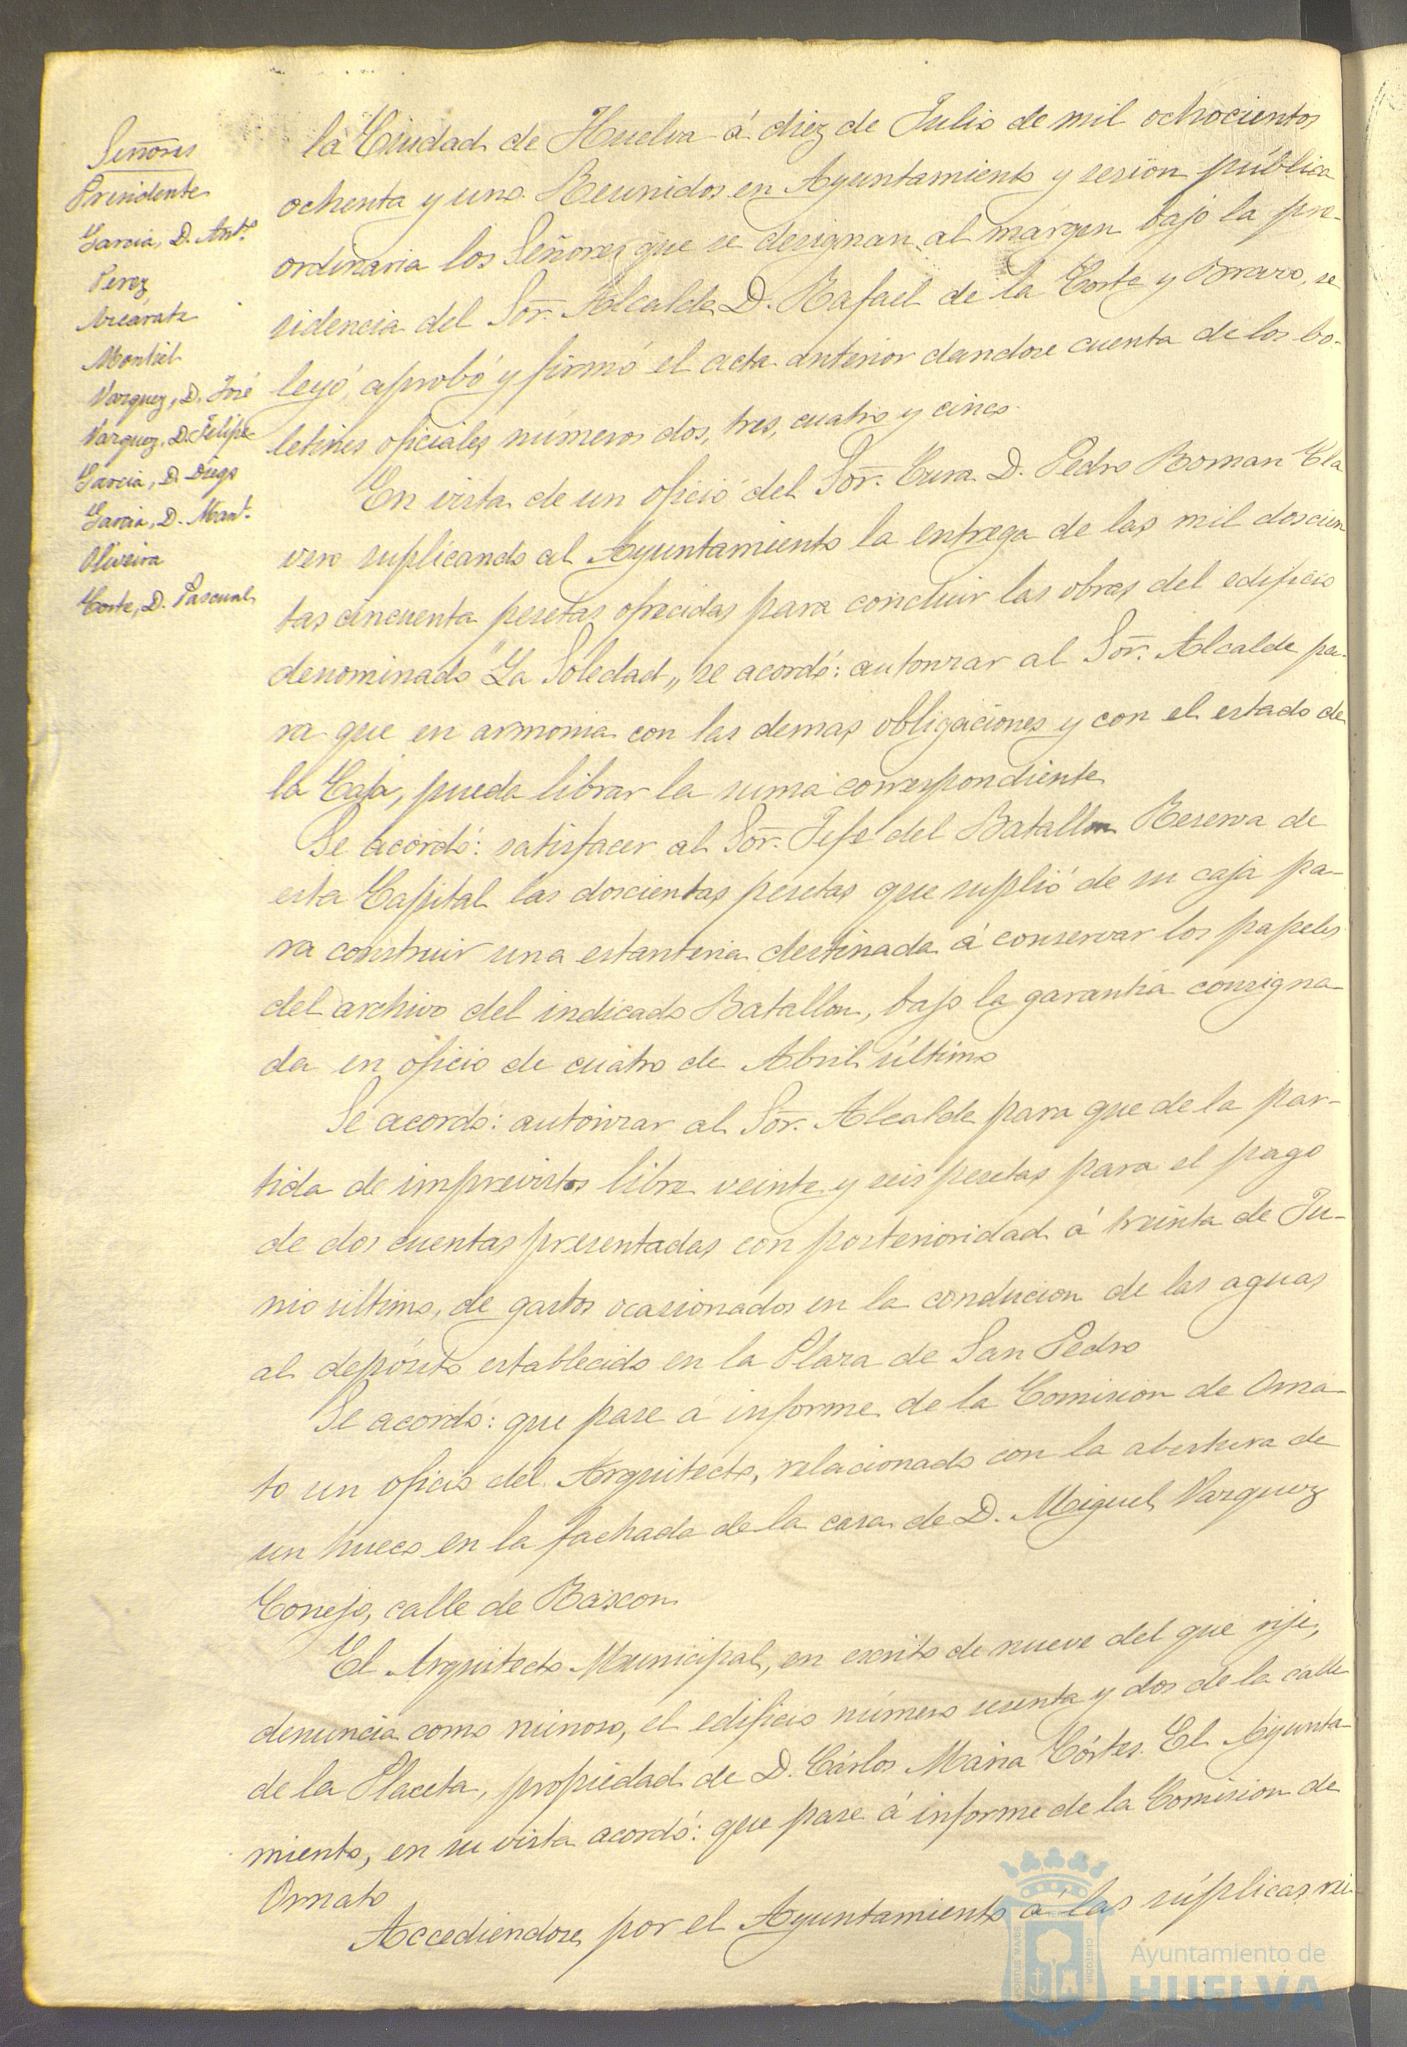 Señores
Presidente
Garcia, D. Antº
Perez
Azcárate
Montiel
Vazquez, D. José
Vazquez, D. Felipe
Garcia, D. Diego
Garcia, D. Manl.
Oliveira
Corte, D. Pascual
la Ciudad de Huelva á diez de Julio de mil ochocientos
ochenta y uno. Reunidos en Ayuntamiento y sesion pública
ordinaria los Señores que se designan al margen bajo la pre-
sidencia del Sor. Alcalde D. Rafael de la Corte y Bravo, se
leyó, aprobó y firmó el acta anterior dandose cuenta de los bo-
letines oficiales, números dos, tres, cuatro y cinco.
En vista de un oficio del Sor. Cura D. Pedro Roman Cla
vero suplicando al Ayuntamiento la entrega de las mil doscien
tas cincuenta pesetas ofrecidas para concluir las obras del edificio
denominado "La Soledad„ se acordó: autorizar al Sor. Alcalde pa-
ra que en armonia con las demas obligaciones y con el estado de
la Caja, pueda librar la suma correspondiente
Se acordó: satisfacer al Sor. Jefe del Batallon Reserva de
esta Capital las doscientas pesetas que suplió de su caja pa-
ra construir una estanteria destinada á conservar los papeles
del archivo del indicado Batallon, bajo la garantia consigna-
da en oficio de cuatro de Abril último
Se acordó: autorizar al Sor. Alcalde para que de la par-
tida de imprevistos libre veinte y seis pesetas para el pago
de dos cuentas presentadas con posterioridad á treinta de Ju-
nio último, de gastos ocasionados en la conducion de las aguas
al depósito establecido en la Plaza de San Pedro
Se acordó: que pase á informe de la Comision de Orna-
to un oficio del Arquitecto, relacionado con la abertura de
un hueco en la fachada de la casa de D. Miguel Vazquez
Conejo, calle de Rascon
El Arquitecto Municipal, en escrito de nueve del que rije,
denuncia como ruinoso, el edificio número sesenta y dos de la calle
de la Placeta, propiedad de D. Cárlos Maria Córtes. El Ayunta-
miento, en su vista acordó: que pase á informe de la Comision de
Ornato
Accediendose por el Ayuntamiento á las súplicas rei-
Ayuntamiento de
HUELVA